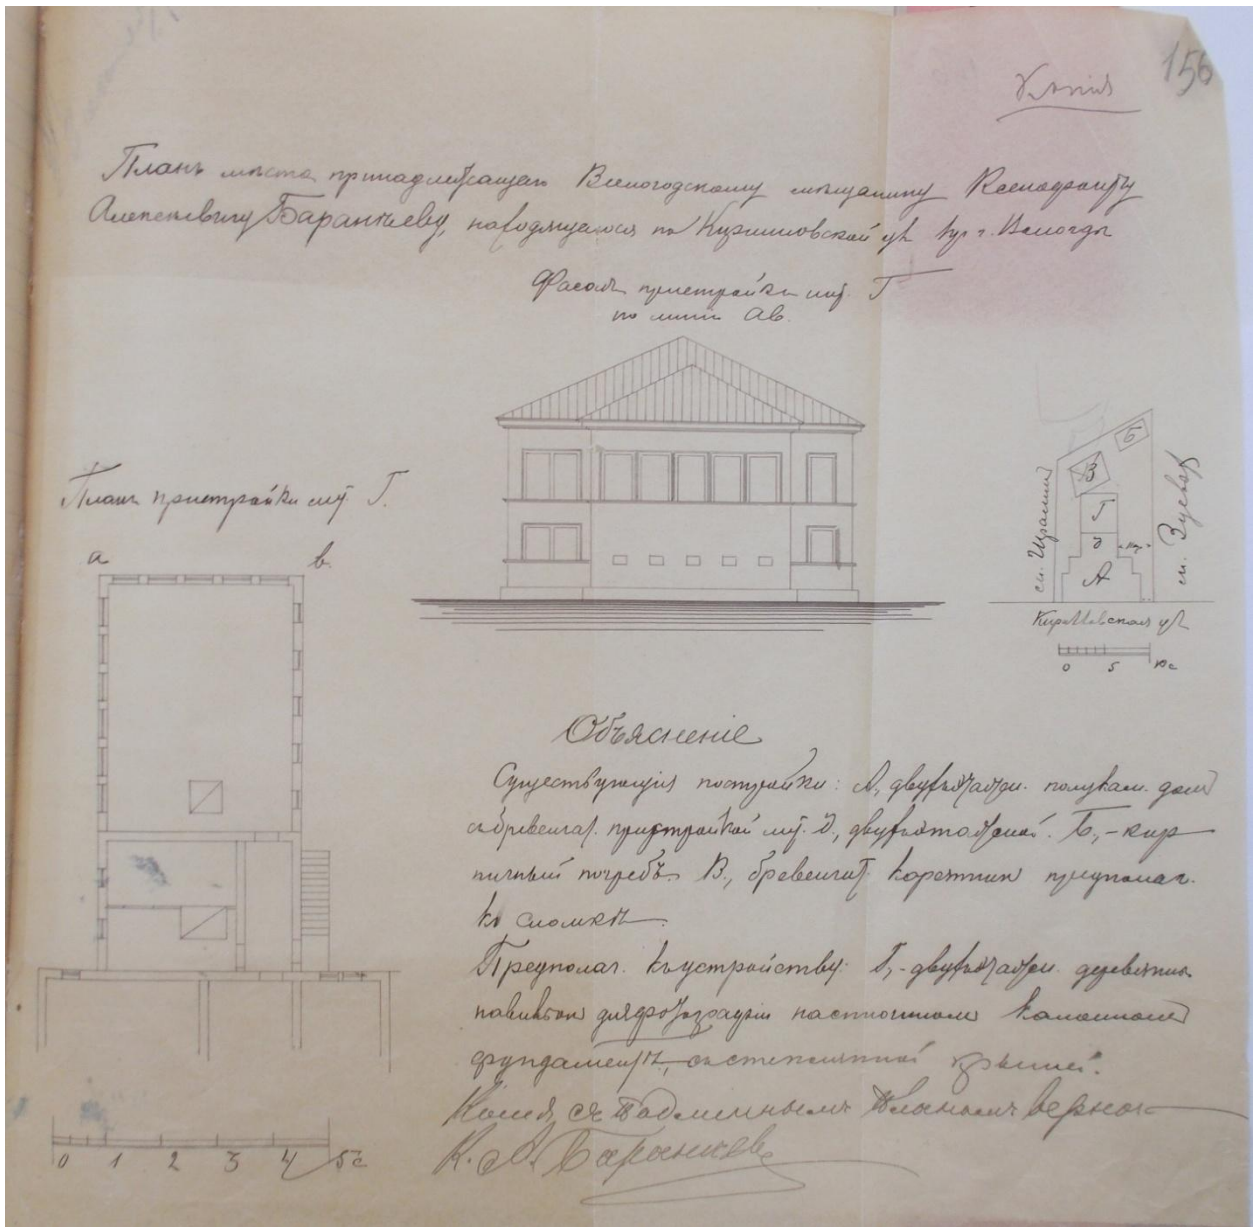 156
Копія
Планъ мѣста принадлежащаго Вологодскому мѣщанину Ксенофонту
Алексѣевичу Баранѣеву, находящагося по Кирилловской ул. г. Вологды
Фасадъ пристройки лит. Г
по линіи ав.
Планъ пристройки лит. Г.
а в.
Б
В
Г
д
А
сл.
сл. Зуевой
Кирилловская ул
0 5 10 с
Объясненіе
Существующія постройки: А, двухъэтажн. полукам. домъ
съ бревенчат. пристройкой лит. д., двухъэтажной. Б, - кир
пичный погребъ. В., бревенчат. каретникъ предполаг.
къ сломкѣ.
Предполаг. къ устройству: Г, - двухъэтажн. деревянн.
павильон для фотографіи на сплошномъ каменномъ
фундаментѣ, со стеклянной крышей.
Копія съ подлиннымъ планомъ вѣрна
К. А. Баранѣевъ
0 1 2 3 4 5 с